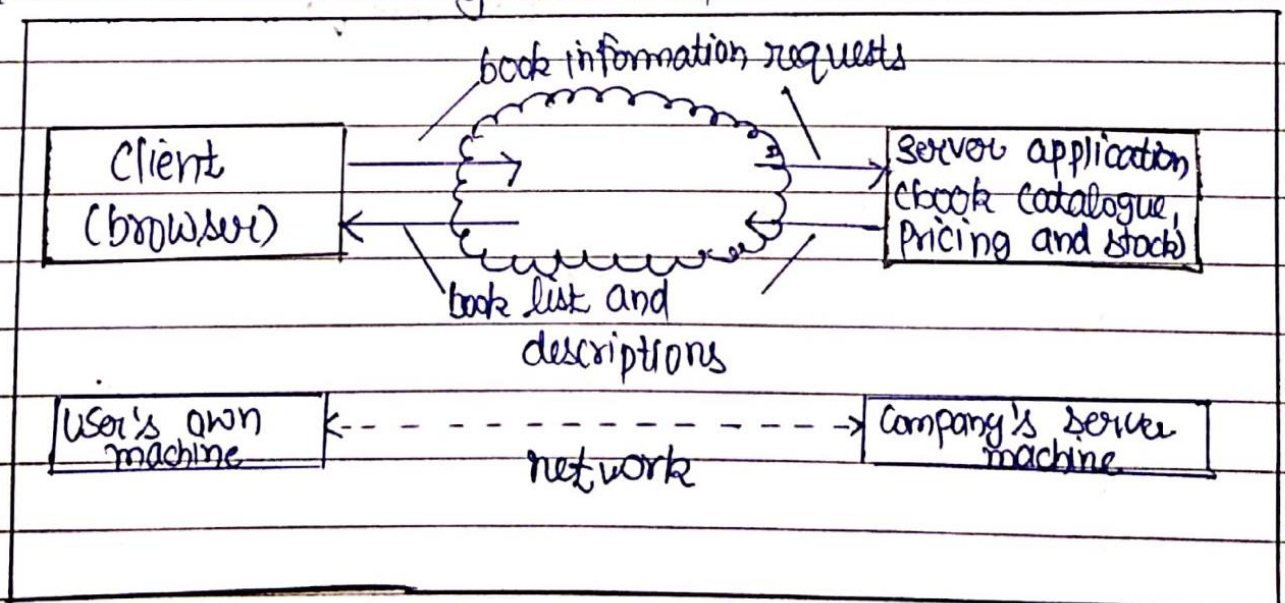 book information requests
Client
(browser)
server application
(book catalogue,
pricing and stock)
book list and
descriptions
user's own
machine
network
company's server
machine